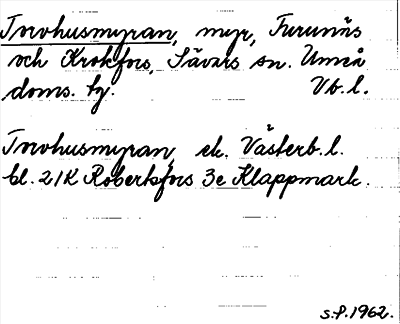 Torvhusmyran, myr, Furunäs
och Krokfors, Sävars sn. Umeå
doms. tg. Vb. l.
Torvhusmyran, ek. Västerb. l.
bl. 21K Robertsfors 3e Klappmark.
s.f. 1962.